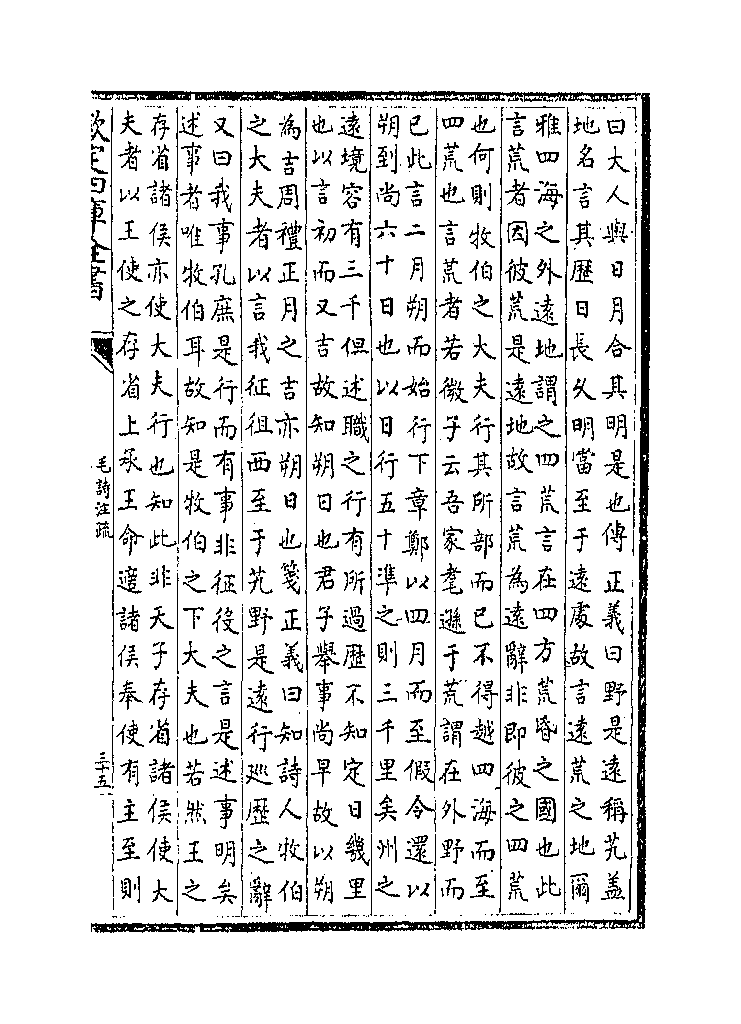 曰大人與日月合其明是也傳正義曰野是遠稱艽蓋
地名言其歷日長久明當至于遠處故言遠荒之地爾
雅四海之外遠地謂之四荒言在四方荒昏之國也此
言荒者因彼荒是遠地故言荒為遠辭非即彼之四荒
也何則牧伯之大夫行其所部而已不得越四海而至
四荒也言荒者若微子云吾家耄遜于荒謂在外野而
已此言二月朔而始行下章鄭以四月而至假令還以
朔到尚六十日也以日行五十準之則三千里矣州之
遠境容有三千但述職之行有所過歷不知定日幾里
也以言初而又吉故知朔日也君子舉事尚早故以朔
為吉周禮正月之吉亦朔日也箋正義曰知詩人牧伯
之大夫者以言我征徂西至于艽野是遠行廵歷之辭
又曰我事孔庶是行而有事非征役之言是述事明矣
述事者唯牧伯耳故知是牧伯之下大夫也若然王之
存省諸侯亦使大夫行也知此非天子存省諸侯使大
夫者以王使之存省上承王命適諸侯奉使有主至則
欽定四庫全書
毛詩注疏
三十五